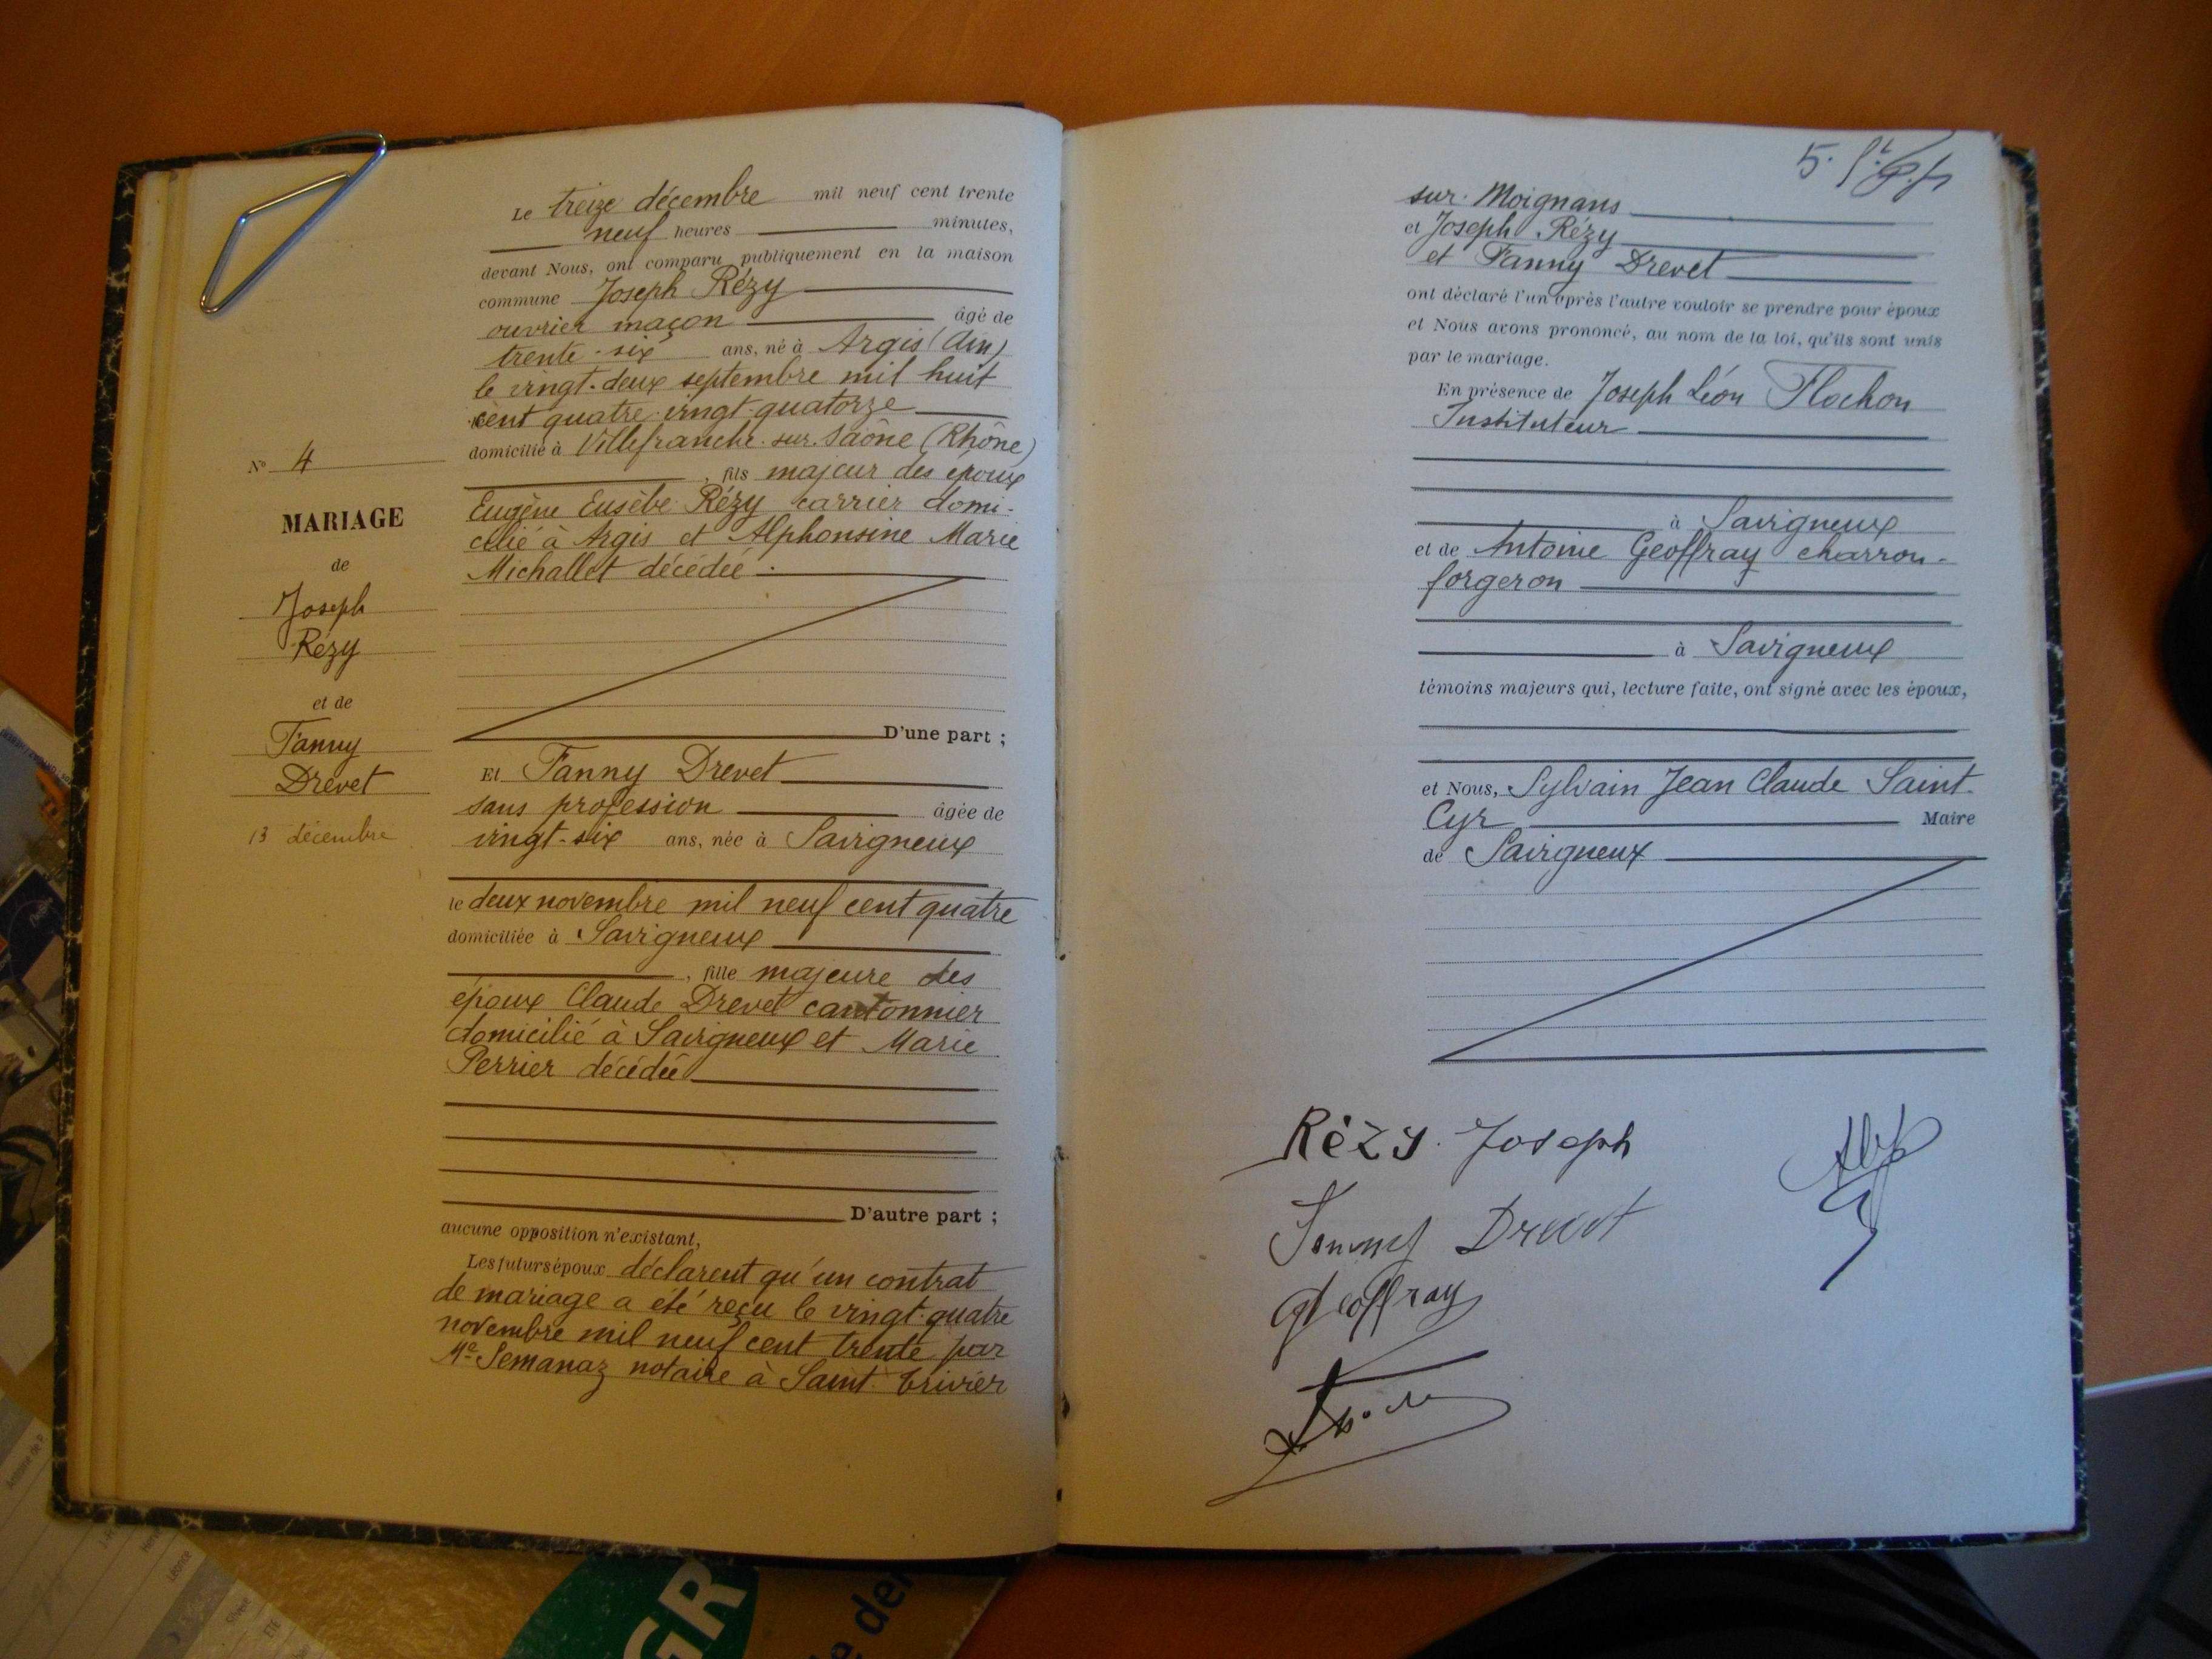 N° 4
MARIAGE
de
Joseph
Rézy
et de
Fanny
Drevet
13 décembre
Le treize décembre mil neuf cent trente
neuf heures minutes,
devant Nous, ont comparu publiquement en la maison
commune Joseph Rézy
ouvrier maçon âgé de
trente-six ans, né à Argis (Ain)
le vingt-deux septembre mil huit
cent quatre-vingt-quatorze
domicilié à Villefranche-sur-Saône (Rhône)
, fils majeur des époux
Eugène Eusèbe Rézy carrier domi-
cilié à Argis et Alphonsine Marie
Michallet décédée
D'une part ;
Et Fanny Drevet
sans profession âgée de
vingt-six ans, née à Savigneux
le deux novembre mil neuf cent quatre
domiciliée à Savigneux
, fille majeure des
époux Claude Drevet cantonnier
domicilié à Savigneux et Marie
Perrier décédée
D'autre part ;
aucune opposition n'existant,
Les futurs époux déclarent qu'un contrat
de mariage a été reçu le vingt-quatre
novembre mil neuf cent trente par
Me Semanaz notaire à Saint-Trivier
5.
sur-Moignans
et Joseph Rézy
et Fanny Drevet
ont déclaré l'un après l'autre vouloir se prendre pour époux
et Nous avons prononcé, au nom de la loi, qu'ils sont unis
par le mariage.
En présence de Joseph Léon Flochon
Instituteur
à Savigneux
et de Antoine Geoffray charron-
forgeron
à Savigneux
témoins majeurs qui, lecture faite, ont signé avec les époux,
et Nous, Sylvain Jean Claude Saint-
Cyr Maire
de Savigneux
Rézy Joseph
Fanny Drevet
Geoffray
GR